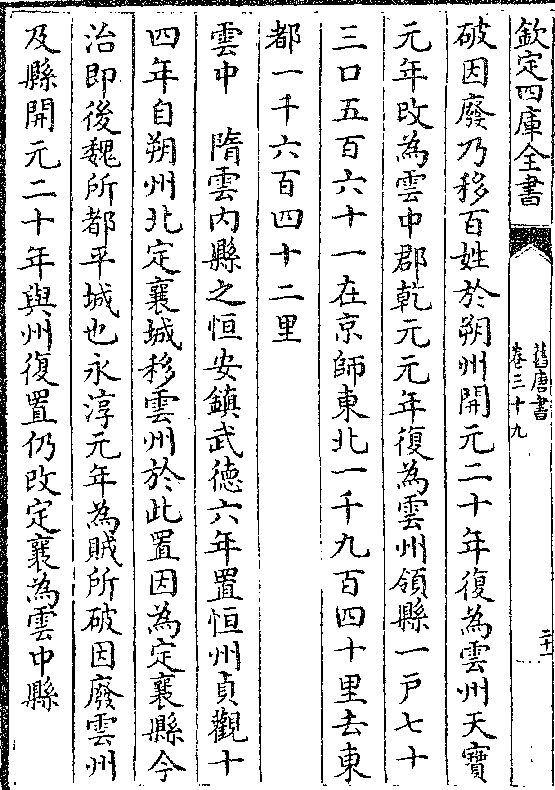 欽定四庫全書
舊唐書
卷三十九
二十一
破因廢乃移百姓於朔州開元二十年復為雲州天寶
元年改為雲中郡乾元元年復為雲州領縣一戸七十
三口五百六十一在京師東北一千九百四十里去東
都一千六百四十二里
雲中　隋雲内縣之恒安鎮武德六年置恒州貞觀十
四年自朔州北定襄城移雲州於此置因為定襄縣今
治即後魏所都平城也永淳元年為賊所破因廢雲州
及縣開元二十年與州復置仍改定襄為雲中縣